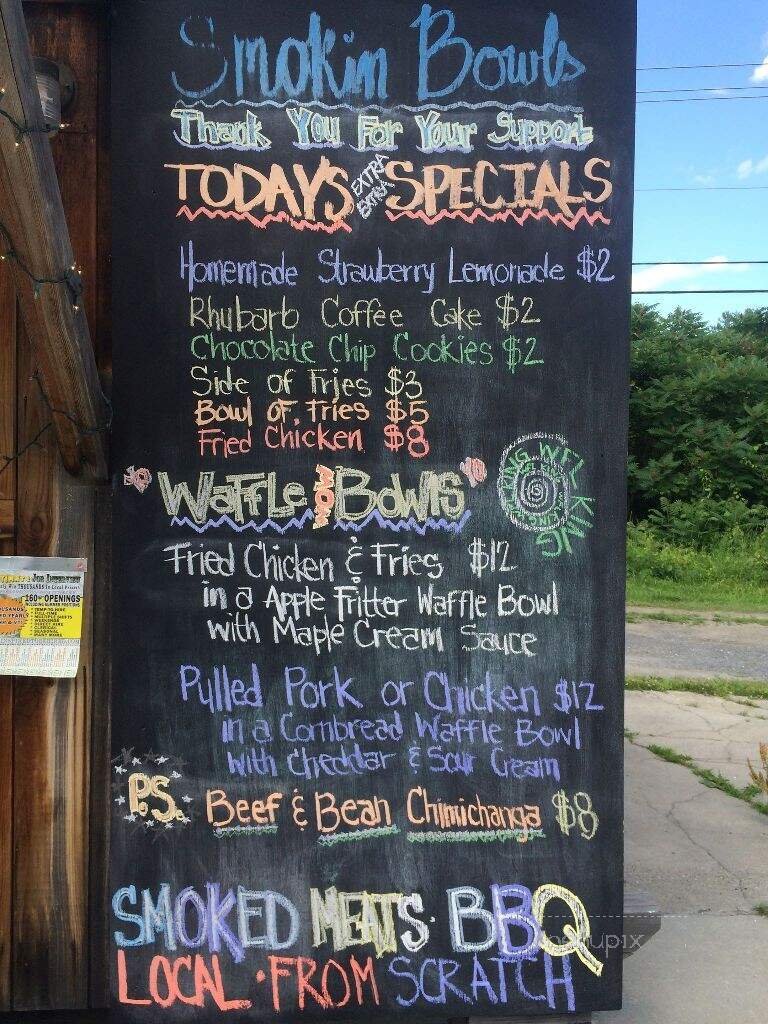 Smokin Bowls
Thank You For Your Support
TODAY'S EXTRA EXTRA SPECIALS
Homemade Strawberry Lemonade $2
Rhubarb Coffee Cake $2
Chocolate Chip Cookies $2
Side of Fries $3
Bowl of Fries $5
Fried Chicken $8
WAFFLE BOWLS
Fried Chicken & Fries $12
in a Apple Fritter Waffle Bowl
with Maple Cream Sauce
Pulled Pork or Chicken $12
in a Cornbread Waffle Bowl
with Cheddar & Sour Cream
P.S. Beef & Bean Chimichanga $8
SMOKED MEATS · BBQ
LOCAL · FROM SCRATCH
JOB INTERVIEW
160+ OPENINGS